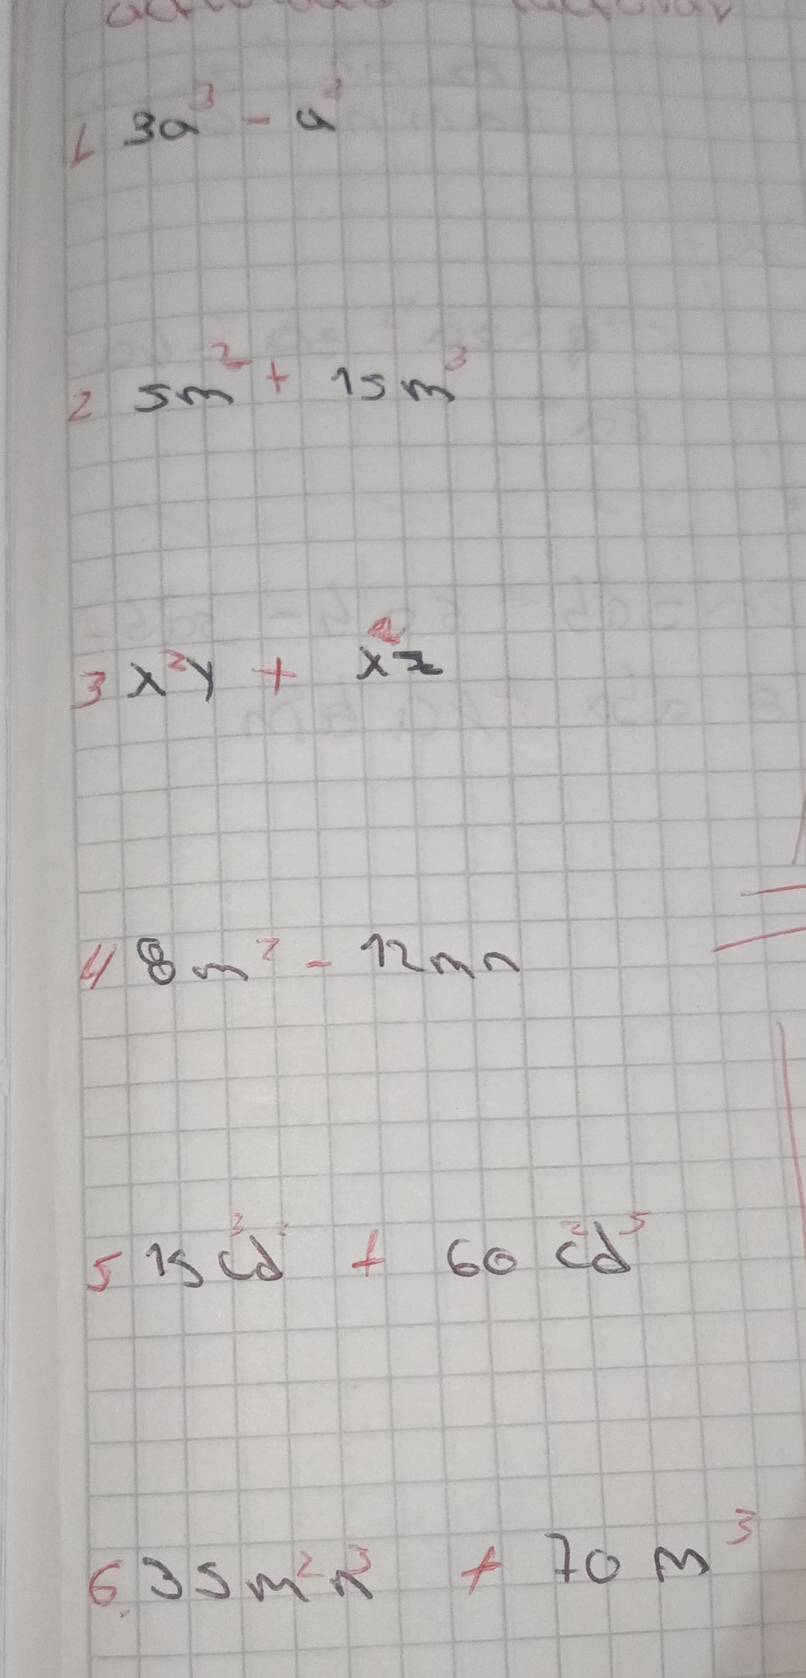 1 3a³ - a²
2 5m² + 15m³
3 x²y + x²z
4 8m² - 12mn
5 15c³d² + 60c²d⁵
6. 35m²n³ + 70m³